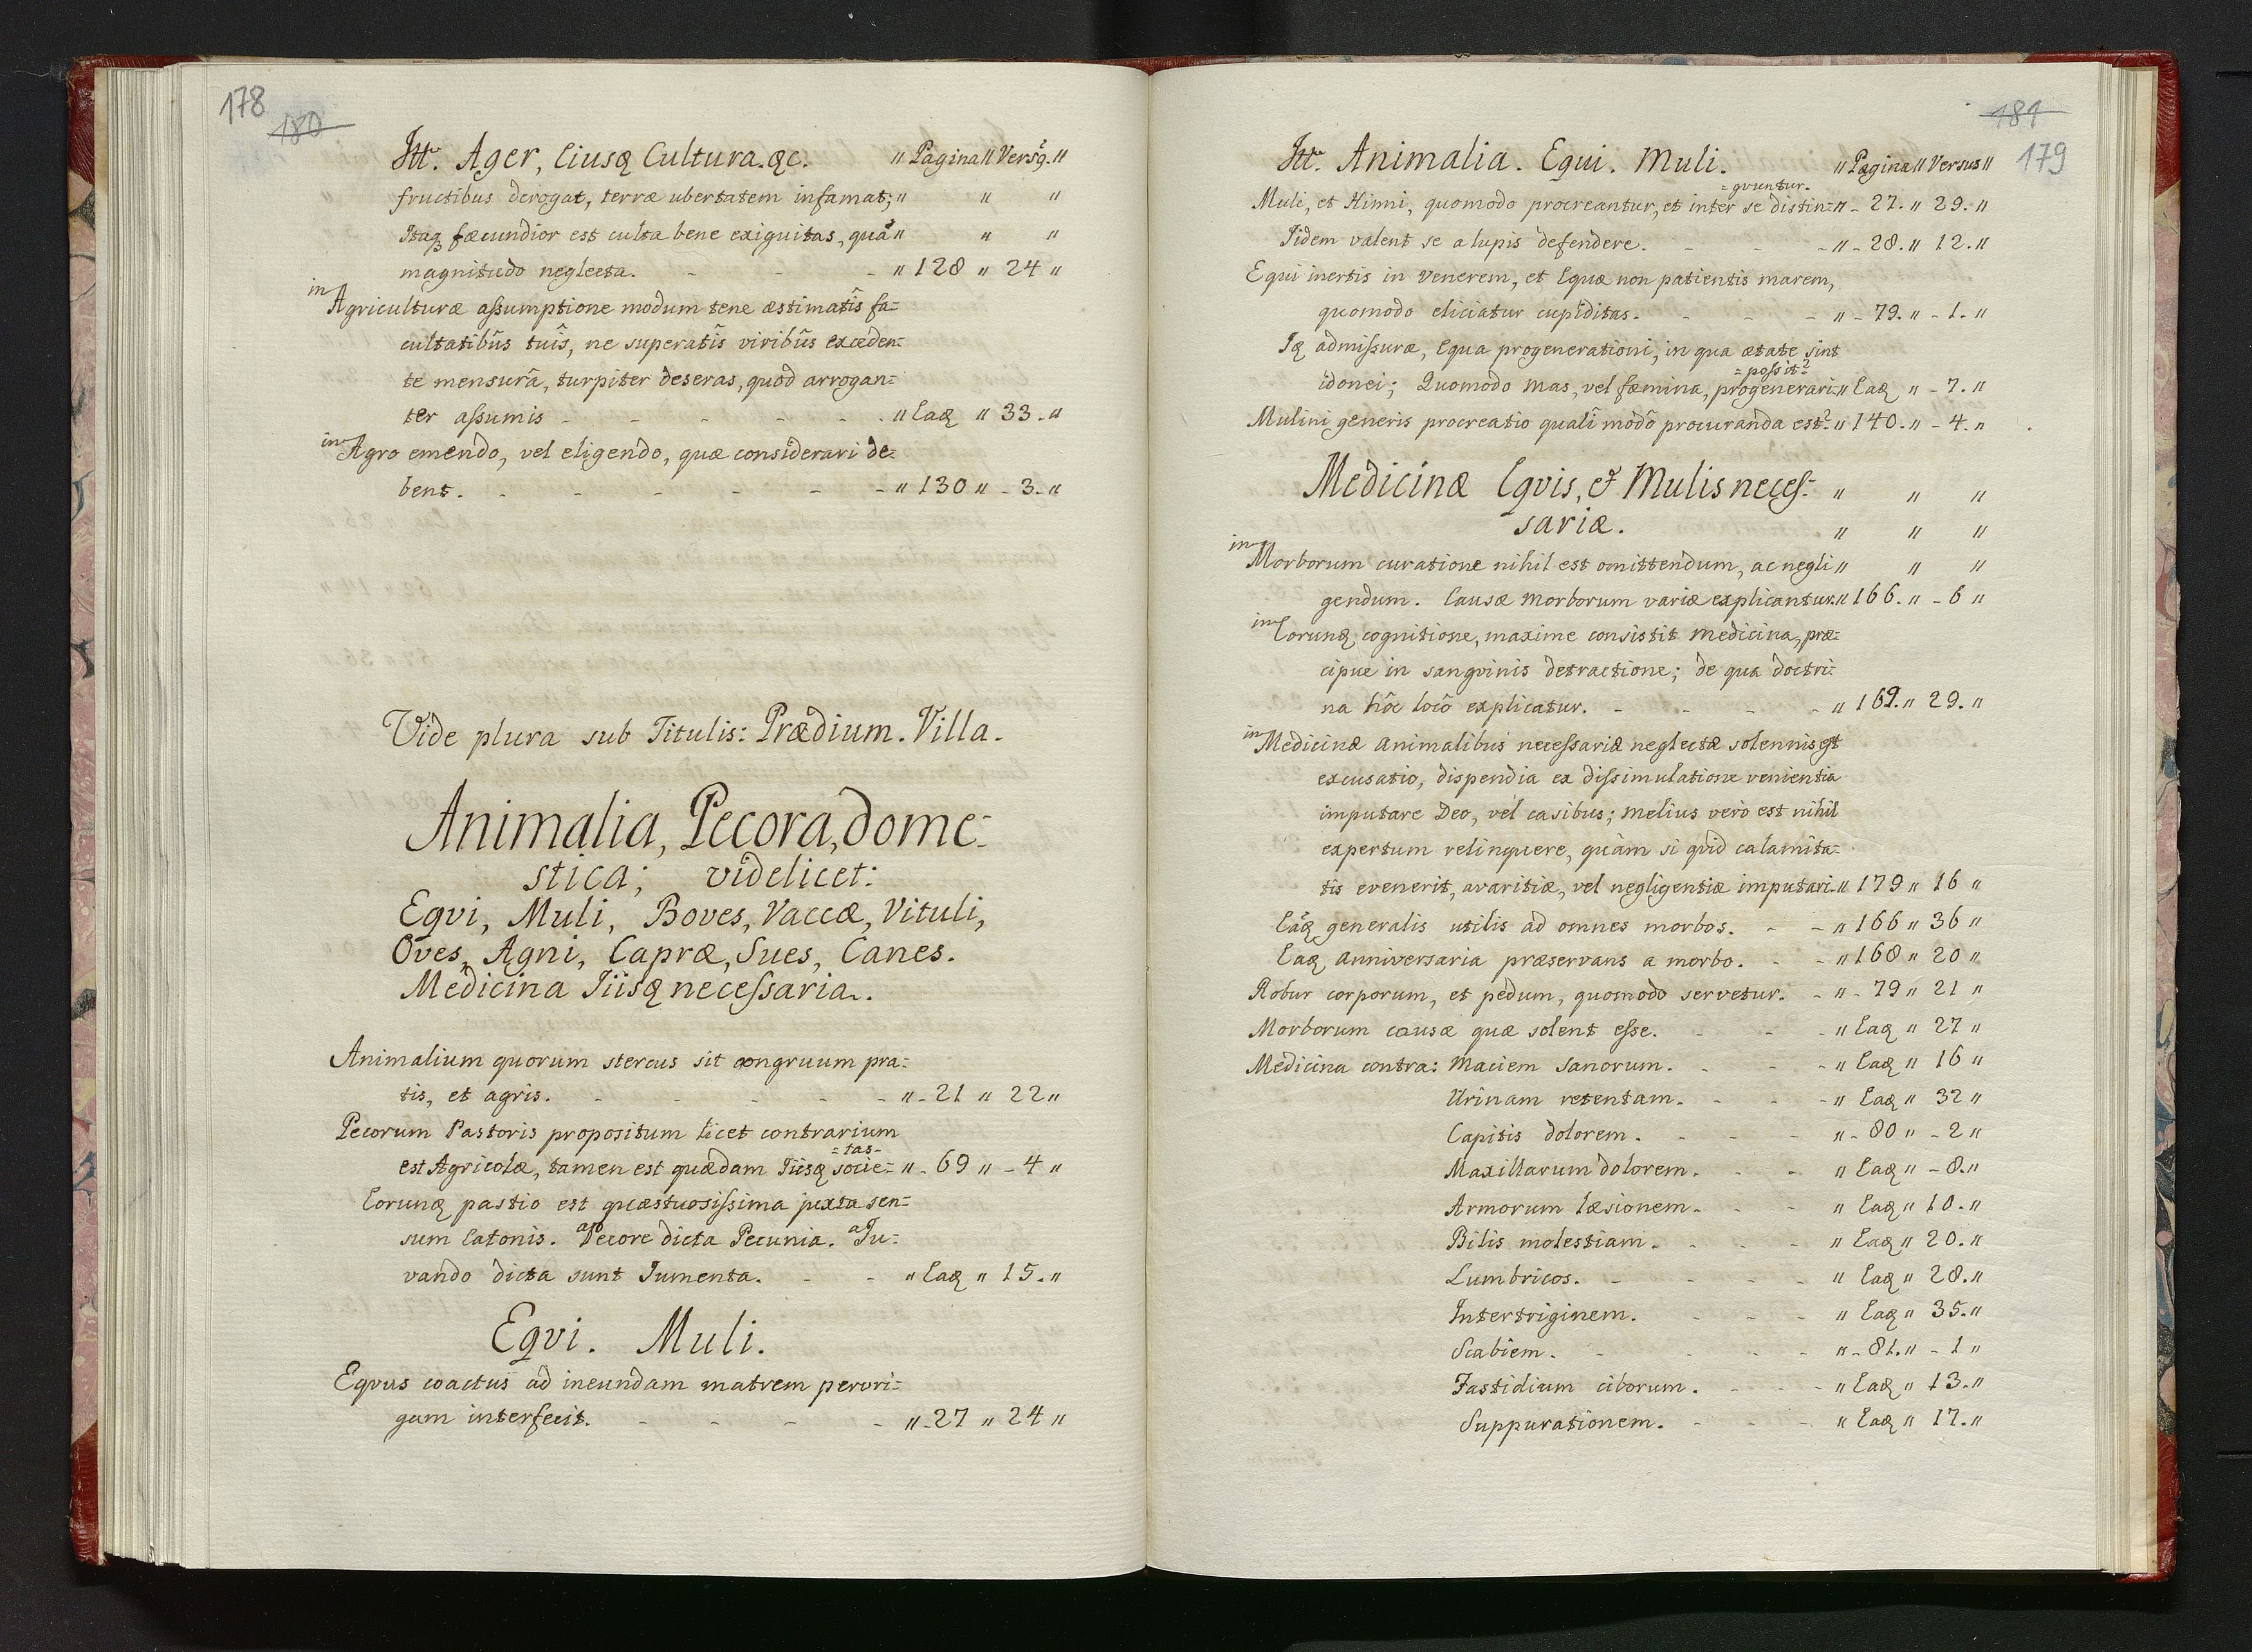 178
180
Itt. Ager, Eiusq Cultura. &c. " Pagina " Versq. "
fructibus derogat, terræ ubertatem infamat; " " "
Itaq fæcundior est culta bene exiguitas, quã " " "
magnitudo neglecta. - - - " 128 " 24 "
in Agriculturæ assumptione modum tene æstimatîs fa=
cultatibûs tuîs, ne superatîs viribûs exceden=
te mensurâ, turpiter deseras, quod arrogan=
ter assumis - - - - - " Eaq " 33. "
in Agro emendo, vel eligendo, quæ considerari de=
bent. - - - - - - " 130 " - 3. "
Vide plura sub Titulis: Prædium. Villa.
Animalia, Pecora, dome=
stica; videlicet:
Eqvi, Muli, Boves, Vaccæ, Vituli,
Oves, Agni, Capræ, Sues, Canes.
Medicina Iiisq necessaria.
Animalium quorum stercus sit congruum pra=
tis, et agris. - - - - - " - 21 " 22 "
Pecorum Pastoris propositum licet contrarium
est Agricolæ, tamen est quædam Iiisq socie= " - 69 " - 4 "
=tas-
Eorunq pastio est quæstuosissima juxta sen=
sum Catonis. a Pecore dicta Pecunia. a Ju=
vando dicta sunt Jumenta. - - " Eaq " 15. "
Eqvi. Muli.
Eqvus coactus ad ineundam matrem perori=
gam interfecit. - - - - " - 27 " 24 "
181
179
Itt. Animalia. Eqvi. Muli. " Pagina " Versus "
=gvuntur.
Muli, et Hinni, quomodo procreantur, et inter se distin= " - 27. " 29. "
Iidem valent se a lupis defendere. - - - " - 28. " 12. "
Equi inertis in Venerem, et Equæ non patientis marem,
quomodo eliciatur cupiditas. - - - " - 79. " - 1. "
Iq admissuræ, Equa progenerationi, in qua ætate sint
=possit?
idonei; Quomodo mas, vel fæmina, progenerari= " Eaq " - 7. "
Mulini generis procreatio qualî modô procuranda est? " 140. " - 4. "
Medicinæ Eqvis, & Mulis neces= " " "
sariæ. " " "
in Morborum curatione nihil est omittendum, ac negli " " "
gendum. Causæ morborum variæ explicantur. " 166. " - 6 "
in Eorunq cognitione, maxime consistit medicina, præ=
cipue in sangvinis detractione; de qua doctri=
na hôc locô explicatur. - - - " 169. " 29. "
in Medicinæ animalibus necessariæ neglectæ solennis est
excusatio, dispendia ex dissimulatione venientia
imputare Deo, vel casibus; melius verò est nihil
expertum relinquere, quàm si qvid calamita=
tis evenerit, avaritiæ, vel negligentiæ imputari. " 179 " 16 "
Eaq generalis utilis ad omnes morbos. - - " 166 " 36 "
Eaq anniversaria præservans a morbo. - - " 168 " 20 "
Robur corporum, et pedum, quomodo servetur. - " - 79 " 21 "
Morborum causæ quæ solent esse. - - - " Eaq " 27 "
Medicina contra: Maciem sanorum. - - - " Eaq " 16 "
Urinam retentam. - - - " Eaq " 32 "
Capitis dolorem. - - - " - 80 " - 2 "
Maxillarum dolorem. - - " Eaq " - 8. "
Armorum læsionem. - - " Eaq " 10. "
Bilis molestiam. - - - " Eaq " 20. "
Lumbricos. - - - - " Eaq " 28. "
Intertriginem. - - - " Eaq " 35. "
Scabiem. - - - - " - 81. " - 1 "
Fastidium ciborum. - - - " Eaq " 13. "
Suppurationem. - - - " Eaq " 17. "